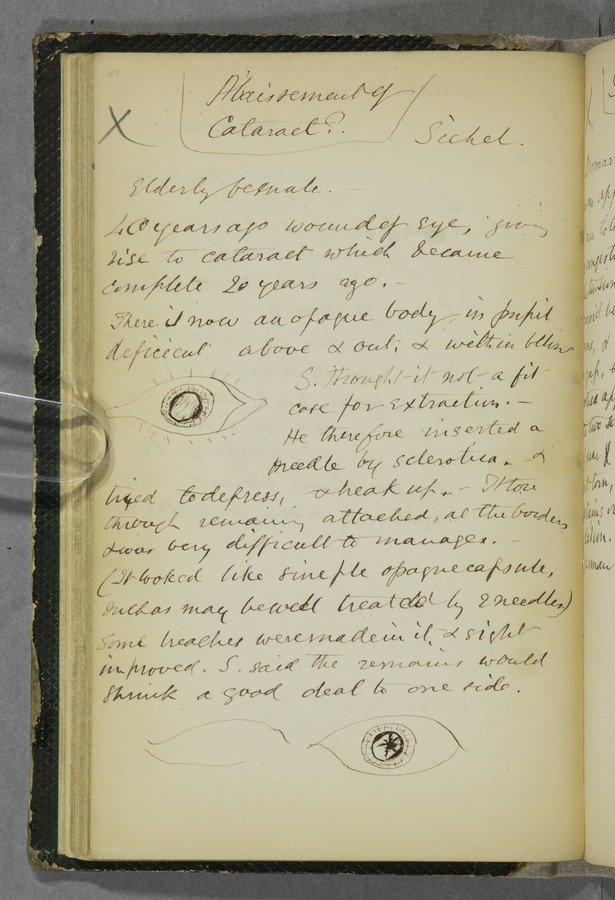 X
Abaissement of
Cataract?.
Sichel.
Elderly female. -
40 years ago wound of eye, giving
rise to cataract which became
complete 20 years ago. -
There is now an opaque body in pupil
deficient above & out, & within
S. thought it not a fit
case for extraction. -
He therefore inserted a
needle by sclerotica. &
tried to depress, & break up. - It tore
through remaining attached, at the borders
& was very difficult to manage. -
(It looked like simple opaque capsule,
such as may be well treated by 2 needles)
Some breaches were made in it, & sight
improved. S. said the remains would
shrink a good deal to one side.